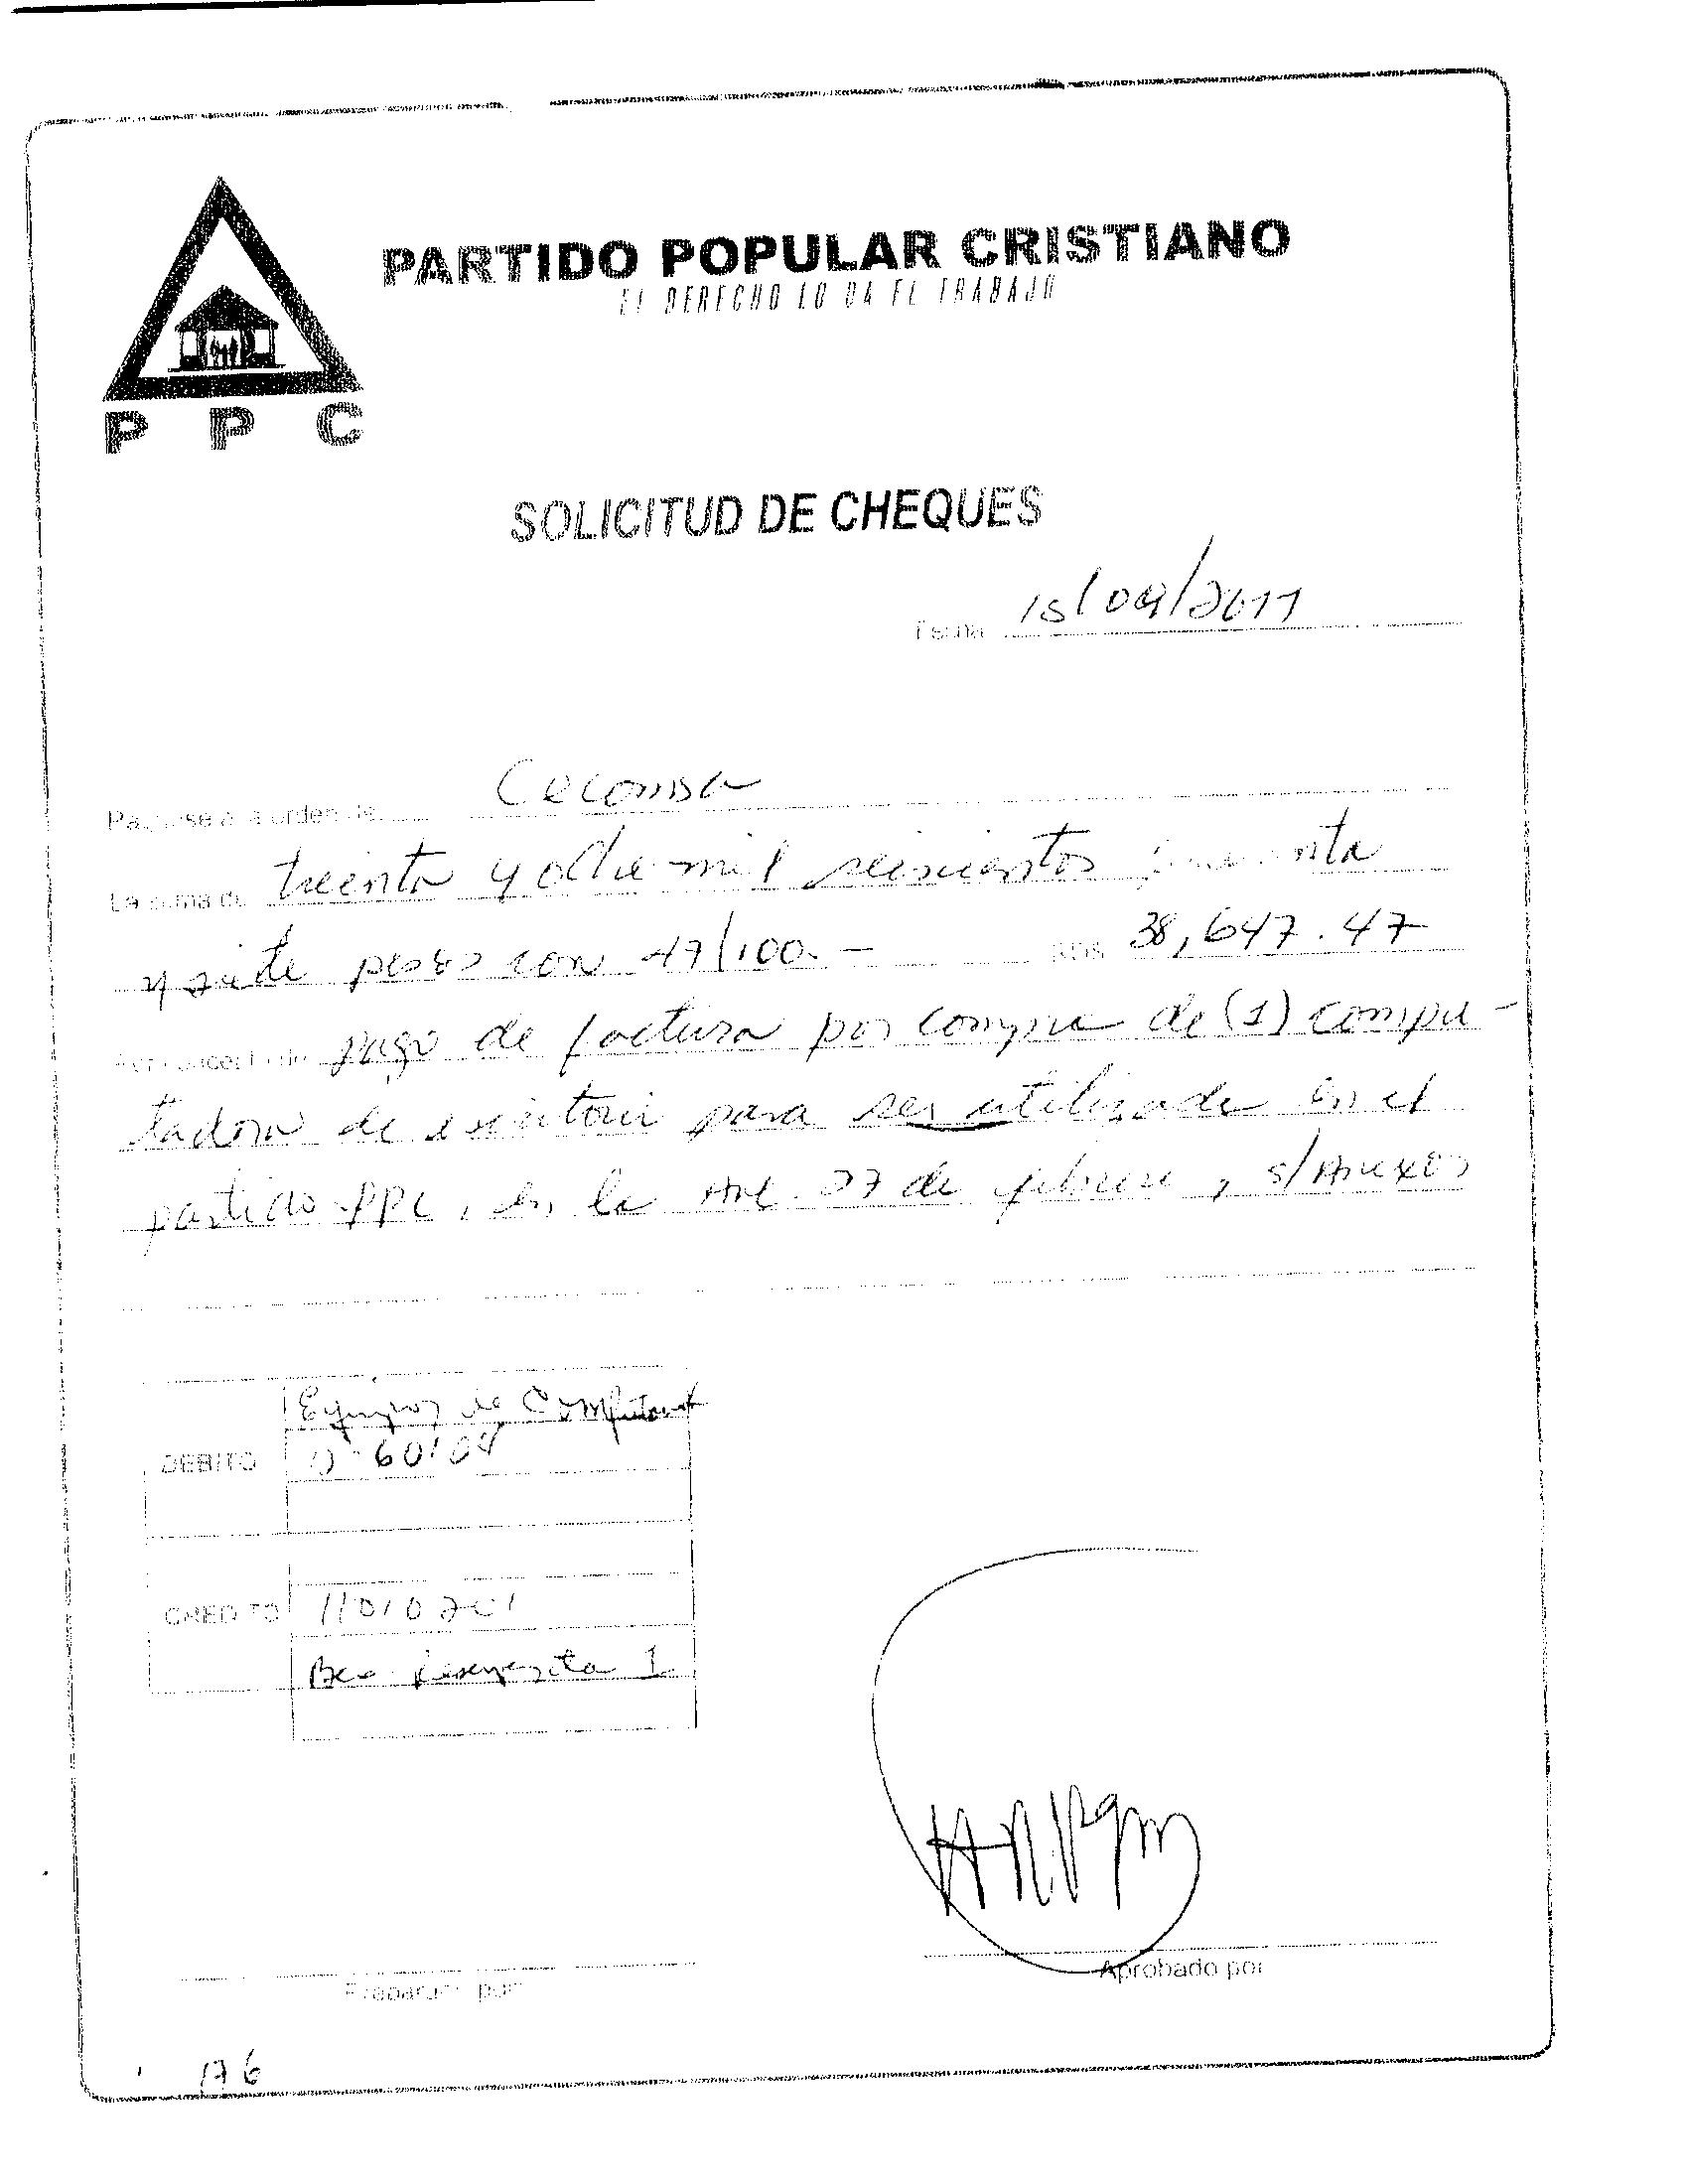 PARTIDO POPULAR CRISTIANO
EL DERECHO LO DA EL TRABAJO
P P C
SOLICITUD DE CHEQUES
Fecha 15/09/2011
Páguese a la orden de Cecomsa
La suma de treinta y ocho mil seiscientos cuarenta
y siete pesos con 47/100.- RD$ 38,647.47
Por concepto de pago de factura por compra de (1) compu-
tadora de escritorio para ser utilizada en el
partido PPC, en la Ave. 27 de febrero, s/Anexos
Equipos de Computos
DEBITO 60104
CREDITO 11010201
Bco. Reservas Cta 1
Preparado por
Aprobado por
176